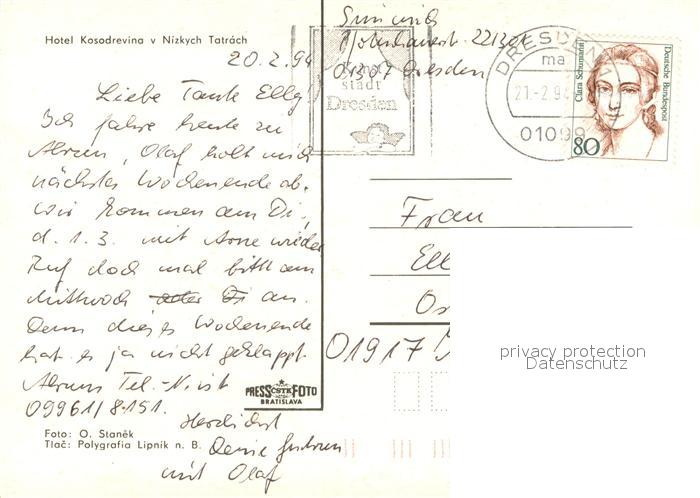 Hotel Kosodrevina v Nízkych Tatrách
20.2.94
Liebe Tante Elly!
Ich fahre heute zu
Olaf holt mich
nächstes Wochenende ab.
wir kommen am Di,
d. 1.3. mit Arne wieder
Ruf doch mal bitte am
Mittwoch oder Di an.
Denn dieses Wochenende
hat es ja nicht geklappt.
Tel.-Nr. ist
09961/8151.
Herzlichst
Deine
mit Olaf
Foto: O. Staněk
Tlač: Polygrafia Lipník n. B.
PRESS ČSTK FOTO
BRATISLAVA
221301
01307 Dresden
Kunst
stadt
Dresden
DRESDEN
ma
21.-2.94
01099
Clara Schumann
Deutsche Bundespost
80
Frau
Ell
01917
privacy protection
Datenschutz